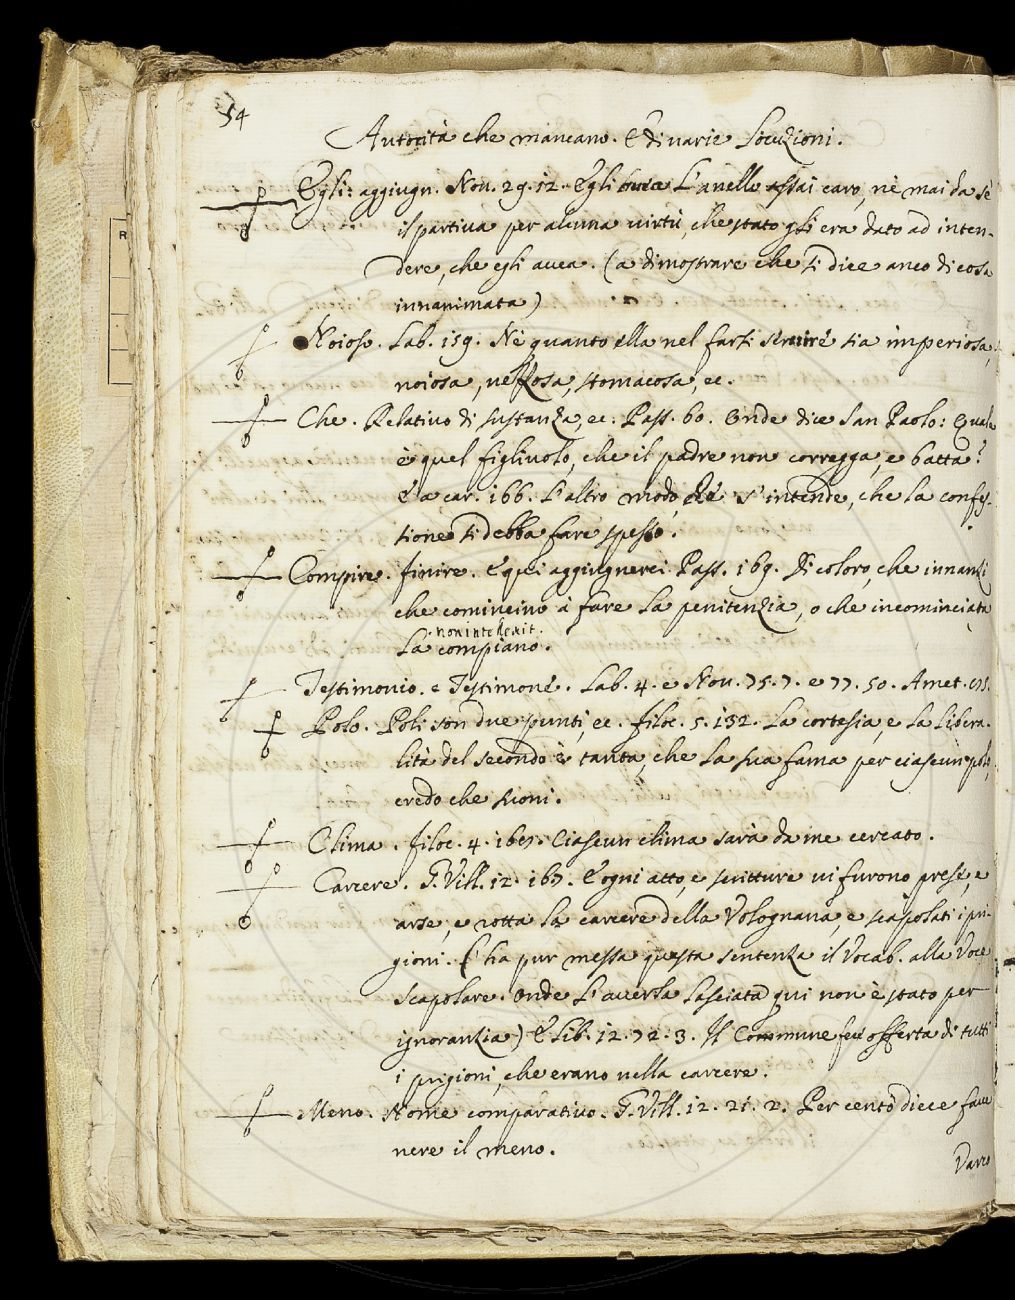 54
Autorità che mancano. E di varie Locuzioni.
Egli: aggiugn. Nov. 29. 12. Egli avea L'anello assai caro, nè mai da sè
il partiva per alcuna virtù, che stato gli era dato ad inten-
dere, che egli avea. (a dimostrare che si dice anco di cosa
innanimata)
Noioso. Lab. 159. Nè quanto ella nel farsi servire sia imperiosa,
noiosa, vezzosa, stomacosa, ec.
Che. Relativo di sustanza, ec. Pass. 60. Onde dice San Paolo: Quale
è quel figliuolo, che il padre non corregga, e batta?
E a car. 166. L'altro modo, che s'intende, che la confes-
sione si debba fare spesso.
Compire. finire. E qui aggiugnerei. Pass. 169. Di coloro, che innanzi
che comincino à fare la penitenzia, o che incominciata
La compiano.
Testimonio. e Testimone. Lab. 4. e Nov. 75. 7. e 77. 50. Amet.
Polo. Poli son due punti, ec. filoc. 5. 132. La cortesia, e la libera-
lità del secondo è tanta, che la sua fama per ciascun polo,
credo che suoni.
Clima. filoc. 4. Ciascun clima sarà da me cercato.
Carcere. G. Vill. 12. E ogni atto, e scritture vi furono prese, e
arse, e rotta la carcere della Volognana, e scapolati i pri-
gioni. (ha pur messa questa sentenza il Vocab. alla Voce
Scapolare. Onde L'averla lasciata qui non è stato per
ignoranzia) E Lib. 12. 72. 3. Il Commune fece offerta di tutti
i prigioni, che erano nella carcere.
Meno. Nome comparativo. G. Vill. 12. 21. 2. Per cento diece
nere il meno.